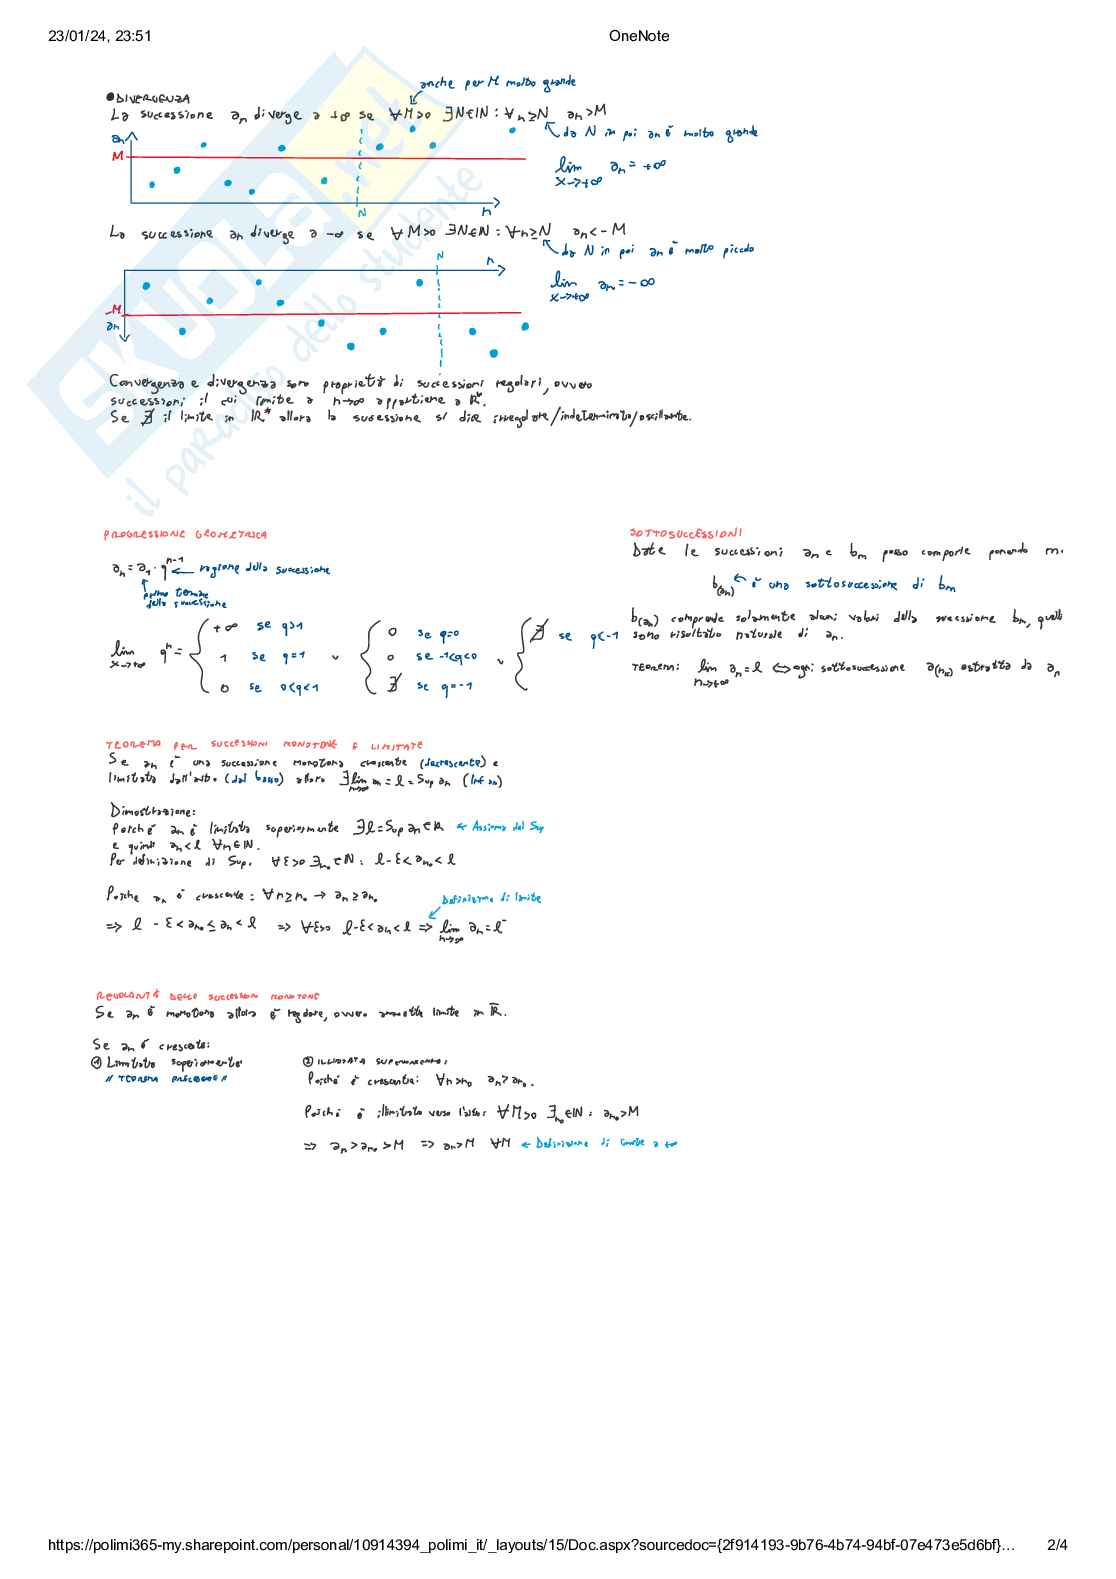 23/01/24, 23:51
OneNote
anche per M molto grande
●DIVERGENZA
La successione an diverge a +∞ se ∀M>0 ∃N∈ℕ : ∀n≥N an>M
da N in poi an è molto grande
an
M
lim an = +∞
x→+∞
N
n
La successione an diverge a -∞ se ∀M>0 ∃N∈ℕ : ∀n≥N an<-M
da N in poi an è molto piccolo
N
n
lim an = -∞
x→+∞
-M
an
Convergenza e divergenza sono proprietà di successioni regolari, ovvero
successioni il cui limite a n→∞ appartiene a ℝ*.
Se ∄ il limite in ℝ* allora la successione si dice irregolare/indeterminata/oscillante.
SKUOLA.net
il paradiso dello studente
PROGRESSIONE GEOMETRICA
an = a1 · q^n-1 ← ragione della successione
primo termine
della successione
lim q^n = { +∞ se q>1
1 se q=1
0 se 0<q<1
v { 0 se q=0
0 se -1<q<0
∄ se q=-1
v { ∄ se q<-1
x→+∞
SOTTOSUCCESSIONI
Date le successioni an e bm posso comporle ponendo m.
b(an) ← è una sottosuccessione di bm
b(an) comprende solamente alcuni valori della successione bm, quelli
sono risultato naturale di an.
TEOREMA: lim an = l ⟺ ogni sottosuccessione a(nk) estratta da an
n→+∞
TEOREMA PER SUCCESSIONI MONOTONE E LIMITATE
Se an è una successione monotona crescente (decrescente) e
limitata dall'alto (dal basso) allora ∃ lim an = l = Sup an (Inf an)
n→∞
Dimostrazione:
Poiché an è limitata superiormente ∃l=Sup an∈ℝ ← Assioma del Sup
e quindi an<l ∀n∈ℕ.
Per definizione di Sup. ∀ε>0 ∃n0∈ℕ: l-ε<an0<l
Poiché an è crescente: ∀n≥n0 → an≥an0
Definizione di limite
⇒ l-ε<an0≤an<l ⇒ ∀ε>0 l-ε<an<l ⇒ lim an=l⁻
n→∞
REGOLARITÀ DELLE SUCCESSIONI MONOTONE
Se an è monotona allora è regolare, ovvero ammette limite in ℝ̄.
Se an è crescente:
① Limitata superiormente
// TEOREMA PRECEDENTE //
② ILLIMITATA SUPERIORMENTE:
Poiché è crescente: ∀n>n0 an>an0.
Poiché è illimitata verso l'alto: ∀M>0 ∃n0∈ℕ: an0>M
⇒ an>an0>M ⇒ an>M ∀M ← Definizione di limite a +∞
https://polimi365-my.sharepoint.com/personal/10914394_polimi_it/_layouts/15/Doc.aspx?sourcedoc={2f914193-9b76-4b74-94bf-07e473e5d6bf}…
2/4